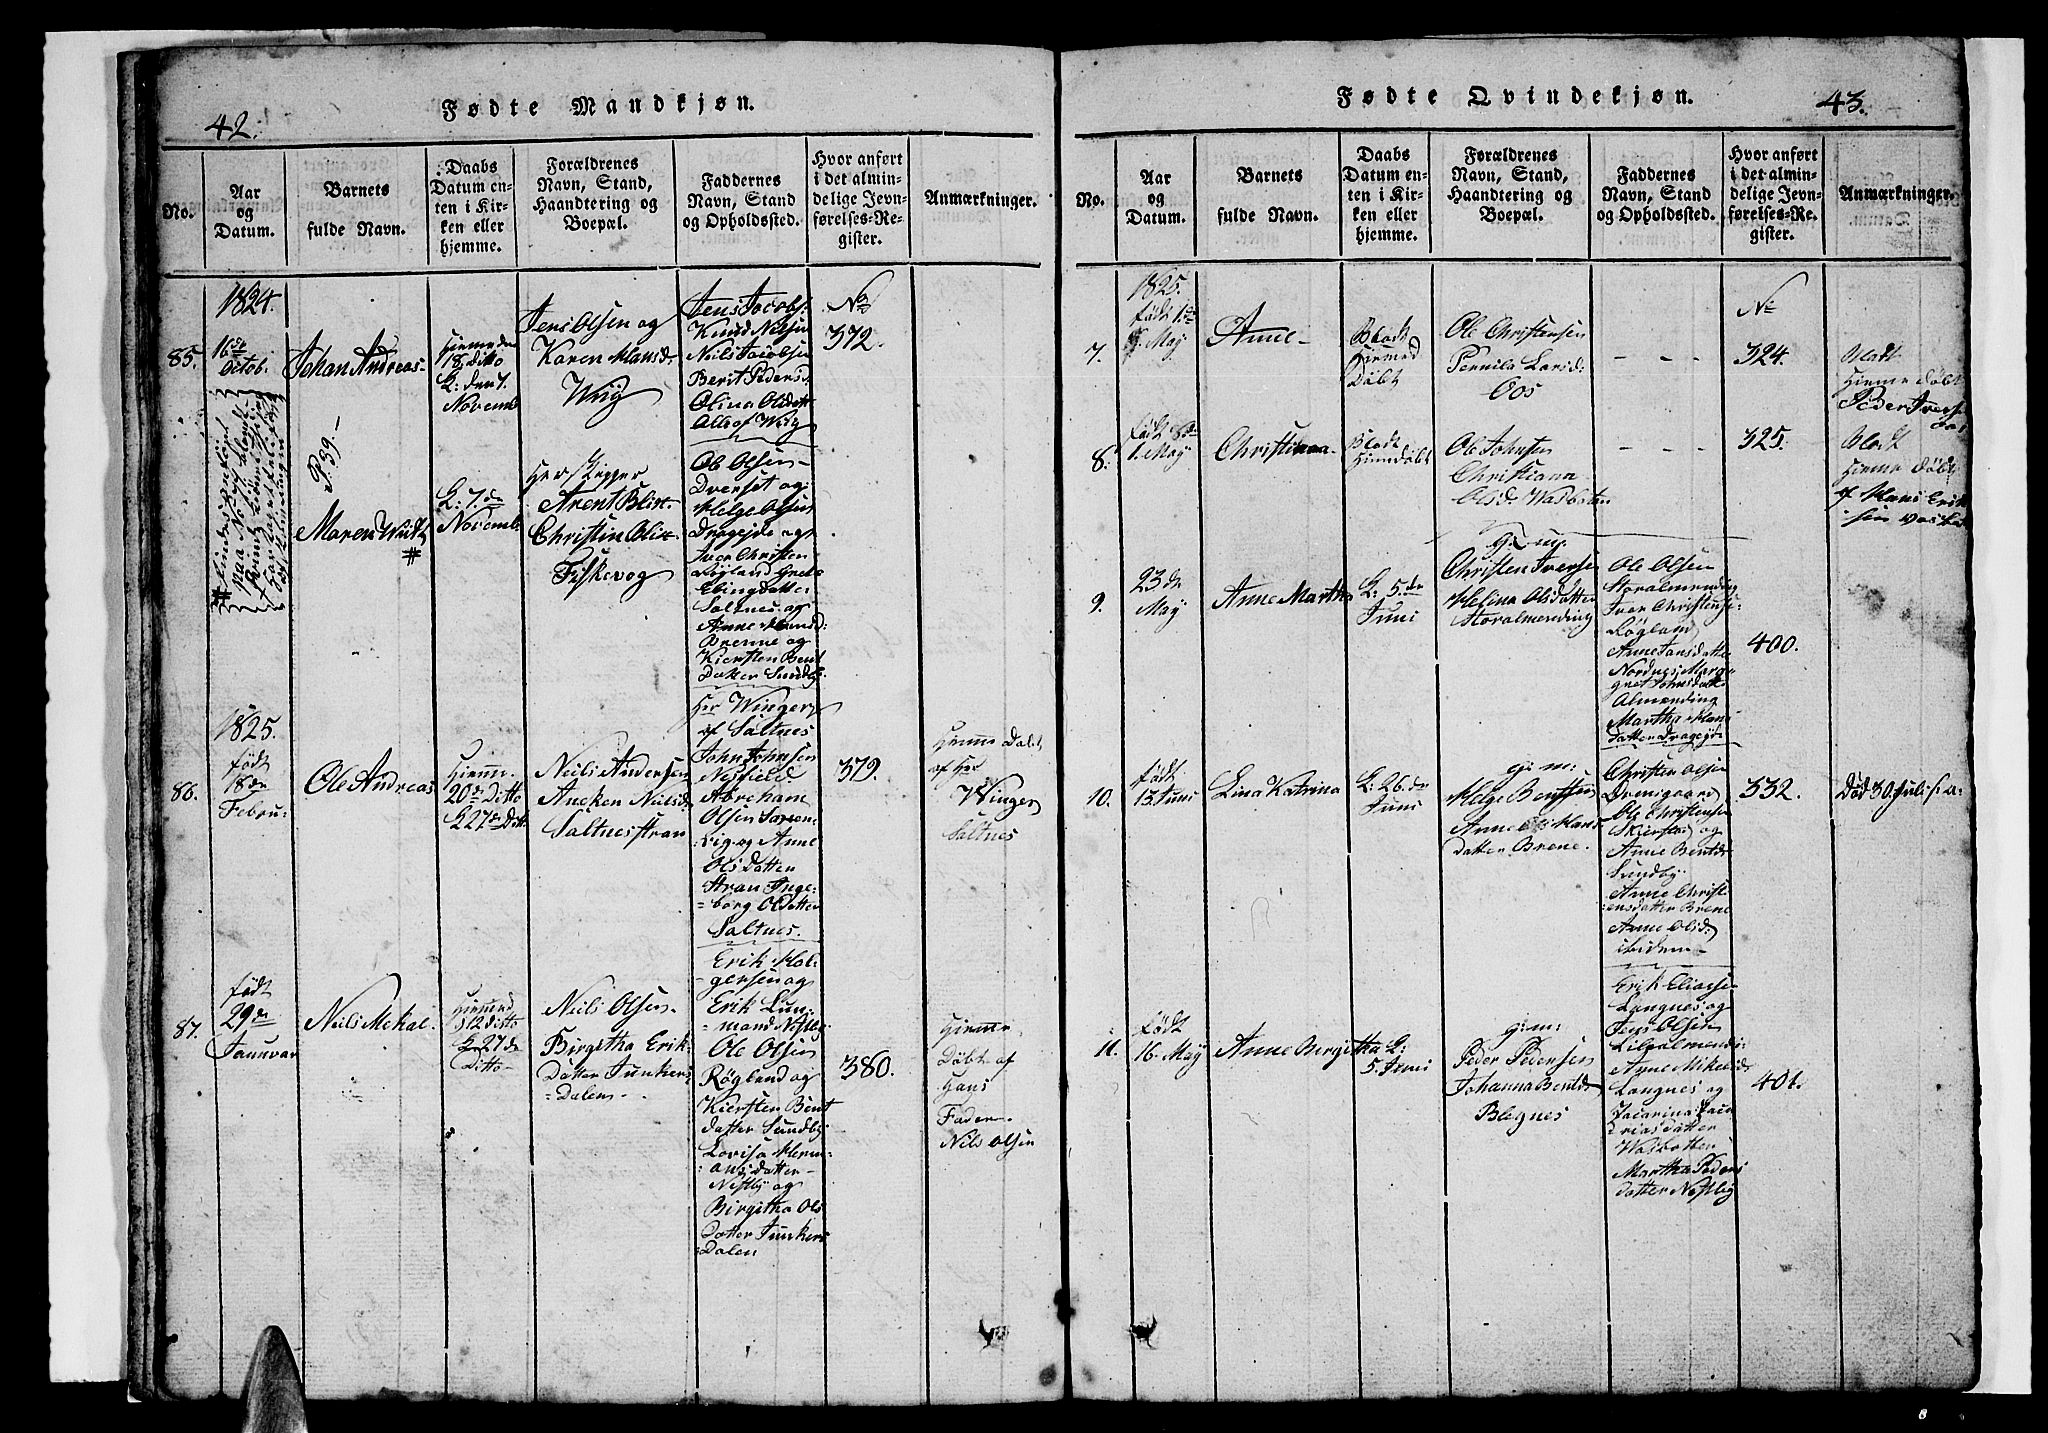 42.
Fødte Mandkjøn.
No.
Aar
og
Datum.
Barnets
fulde Navn.
Daabs
Datum en-
ten i Kir-
ken eller
hjemme.
Forældrenes
Navn, Stand,
Haandtering og
Boepæl.
Faddernes
Navn, Stand
og Opholdssted.
Hvor anført
i det almin-
delige Jevn-
førelses-Re-
gister.
Anmærkninger.
85.
1824.
16de
Octob.
Johan Andreas
18 Ditto
K: den 7.
Novemb
Jens Olsen og
Karen Hansd.
Wiig
Jens Jacobs.
Knud Nilsen
Neils Jacobsen
Berit Peders d.
Olina Olsdatt
Alle af Wiig
No
372.
P. 39.
Maren
#
K: 7. de
Novemb
Arent Blix
Christin Blix
Fiskevog
Ole Olsen
Dverset og
Helge Olsen
Dragejde og
Iver Christen
Røgland
Elingdatter
Saltnes og
Anne
Brenne og
Kiersten Bent
Datter Sundby
86.
1825.
født
18de
Febru:
Ole Andreas
Hiemm.
20de Ditto
K 27de Ditto
Neils Andersen
Aneken Neilsd
Saltnesstran
Hr Winger
af Saltnes
John Johnsen
Nesfield
Abraham
Olsen
og Anne
Ols Datter
Stran Inge:
=borg Olsdatter
Saltnes.
379.
Hiemme Døbt
af Hr
Winger
Saltnes
87.
født
29de
Januar
Neils Mekal
12 Ditto
K 27de
Ditto
Neils Olsen
Birgitha Erik-
Datter Junkers
=Dalen
Erik Hol-
gersen og
Erik Lun-
mand Nestby
Ole Olsen
Røgland og
Kiersten Bent
datter Sundby
Lovisa Herm
ansdatter
Nestby og
Birgitha Ols
Datter Junkers
Dalen
380.
Hiemme
Døbt af
Hans
Fader
Nils Olsen
Fødte Qvindekjøn.
43.
No.
Aar
og
Datum.
Barnets
fulde Navn.
Daabs
Datum en-
ten i Kir-
ken eller
hjemme.
Forældrenes
Navn, Stand,
Haandtering og
Boepæl.
Faddernes
Navn, Stand
og Opholdssted.
Hvor anført
i det almin-
delige Jevn-
førelses-Re-
gister.
Anmærkninger.
7.
1825.
født
May
Anne
Blodt
Hiemme
Døbt
Ole Christensen
Pernila Larsd.
Oos
- - -
No
324.
blodt
Hiemme Døbt
Peder Iverse
8.
født
1. May
Christiana
Blodt
Hiemdøbt
Ole Johnsen
Christiana
Olsd Wasbotten
- - -
325.
blodt
Hieme Døbt
af Hans Erik
sen
9.
23de
May
Anne Martha
K: 5. de
Juni
Christen Iversen
Helina Olsdatter
Storalmending
Ole Olsen
Storalmending
Iver Christense:
Røgland
Anne Jansdatte
Nordnes Marg
gret Johnsdatt
Almending
Martha Hans
datter Dragejde
400.
10.
født
13. Juni
Lina Katrina
K: 26. de
Juni
g: m:
Helge Bentsen
Anne Hans
datter Brene.
Christen Olsen
Ole Christensen
Skiersta og
Anne Bentd:
Sundby
Anne Christ
ensdatter Brene
Anne Olsd:
ibidem
332.
Død 30. Juli s: a:
11.
født
16. May
Anne Bergitha
K:
5. Juni
g: m:
Peder Pedersen
Johanna Bentd
Blegnes
Erik Eliasse
Langnes og
Jens Olsen
Lilealmendi:
Anne Mikelsd
Langnes og
Wasbotten
Martha Peders
datter Nestby
401.